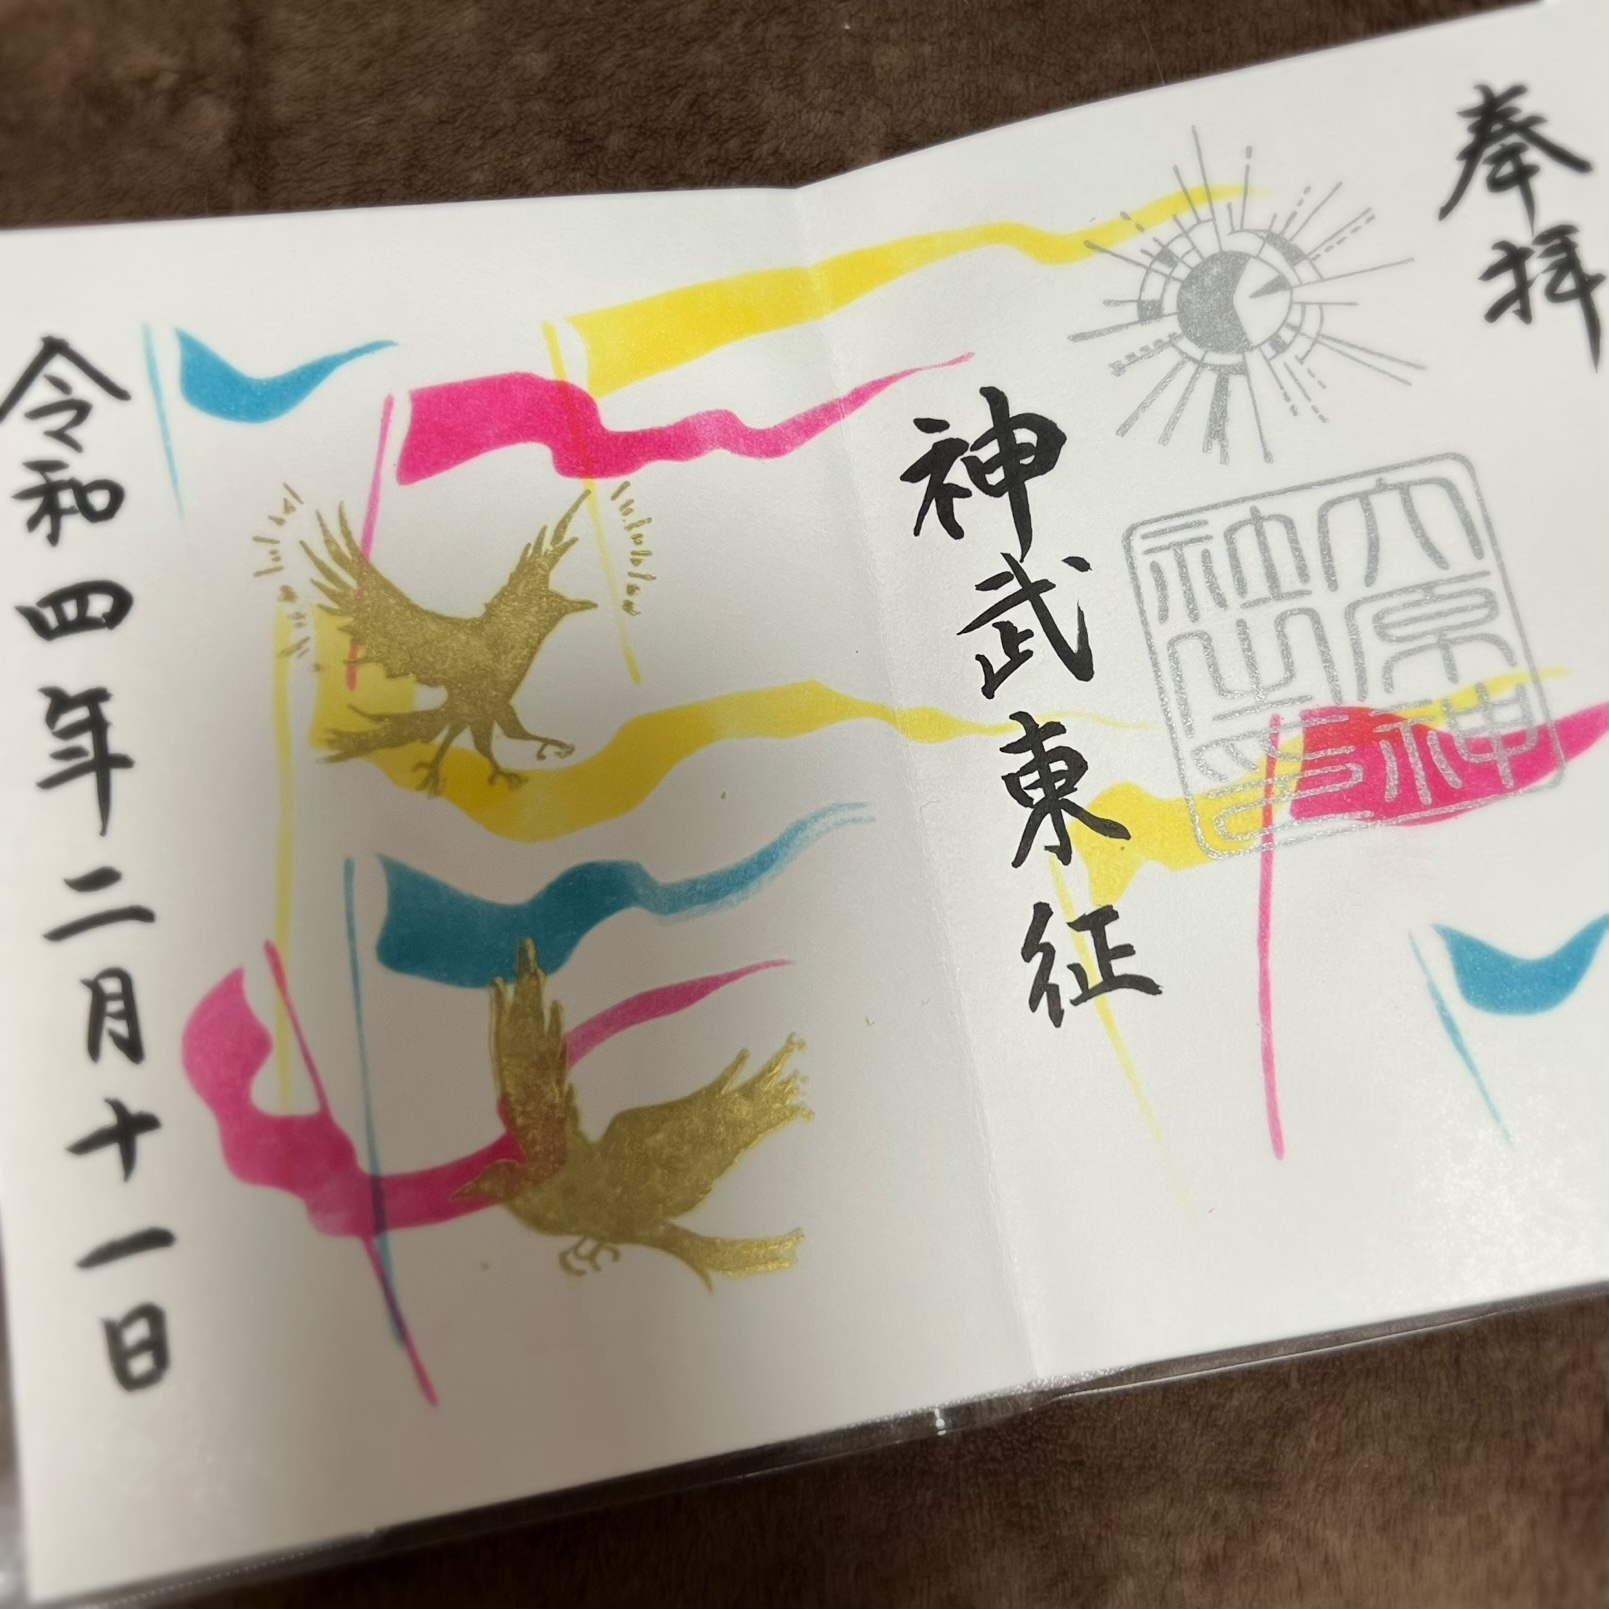 奉拝
神武東征
六原神
社之印
令和四年二月十一日